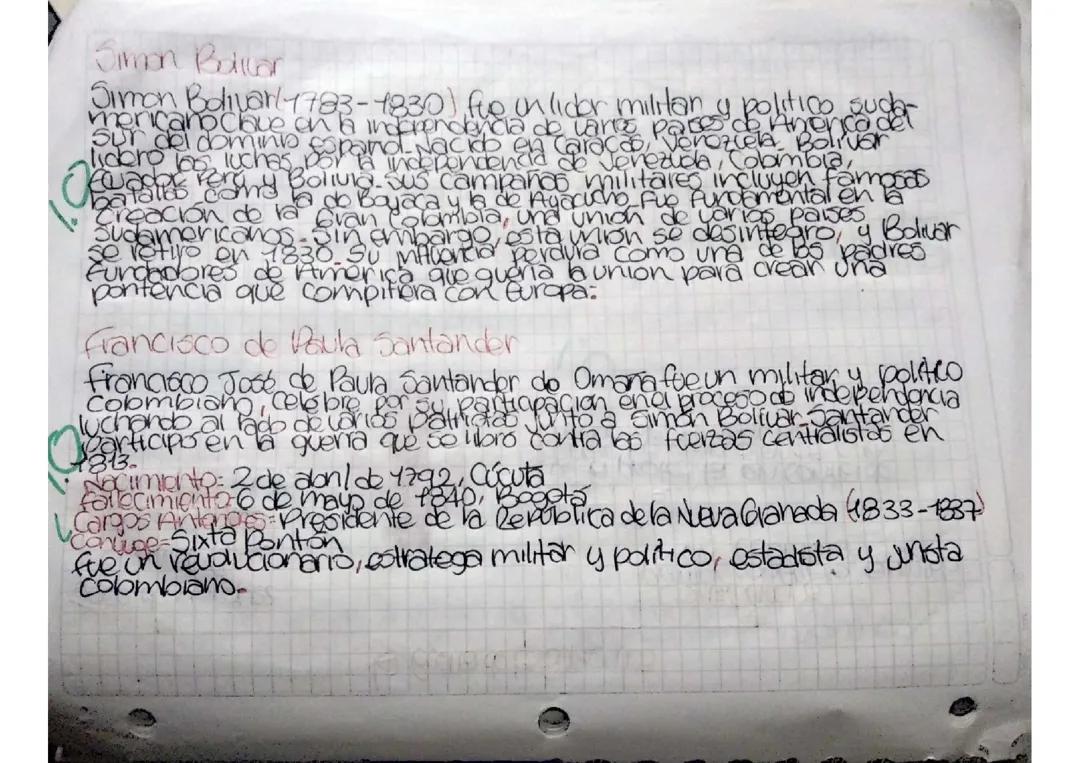 Simon Bolivar
Simon Bolivar (1783-1830) fue un lider militar y politico suda-
mericano clave en la independencia de varios paises de America del
sur del dominio español. Nacido en Caracas, Venezuela. Bolivar
lidero las luchas por la independencia de Venezuela, Colombia,
1.0
Ecuador Peru y Bolivia. Sus campañas militares incluyen famosas
batallas como la de Boyaca y la de Ayacucho. Fue fundamental en la
creacion de la Gran Colombia, una union de varios paises
sudamericanos. Sin embargo, esta union se desintegro, y Bolivar
se retiro en 1830. Su influencia perdura como una de los padres
fundadores de America que queria la union para crear una
pontencia que compitiera con Europa.
Francisco de Paula Santander
Francisco José de Paula Santander de Omaña fue un militar y politico
colombiano, celebre por su participacion en el proceso de independencia
luchando al lado de varios patriotas junto a Simon Bolivar. Santander
1.0
participo en la guerra que se libro contra las fuerzas centralistas en
1813.
Nacimiento: 2 de abril de 1792, Cúcuta
Fallecimiento: 6 de mayo de 1840, Bogotá
Cargos Anteriores: Presidente de la República de la Nueva Granada (1833-1837)
Conyuge: Sixta Pontón
fue un revolucionario, estratega militar y político, estadista y jurista
colombiano.